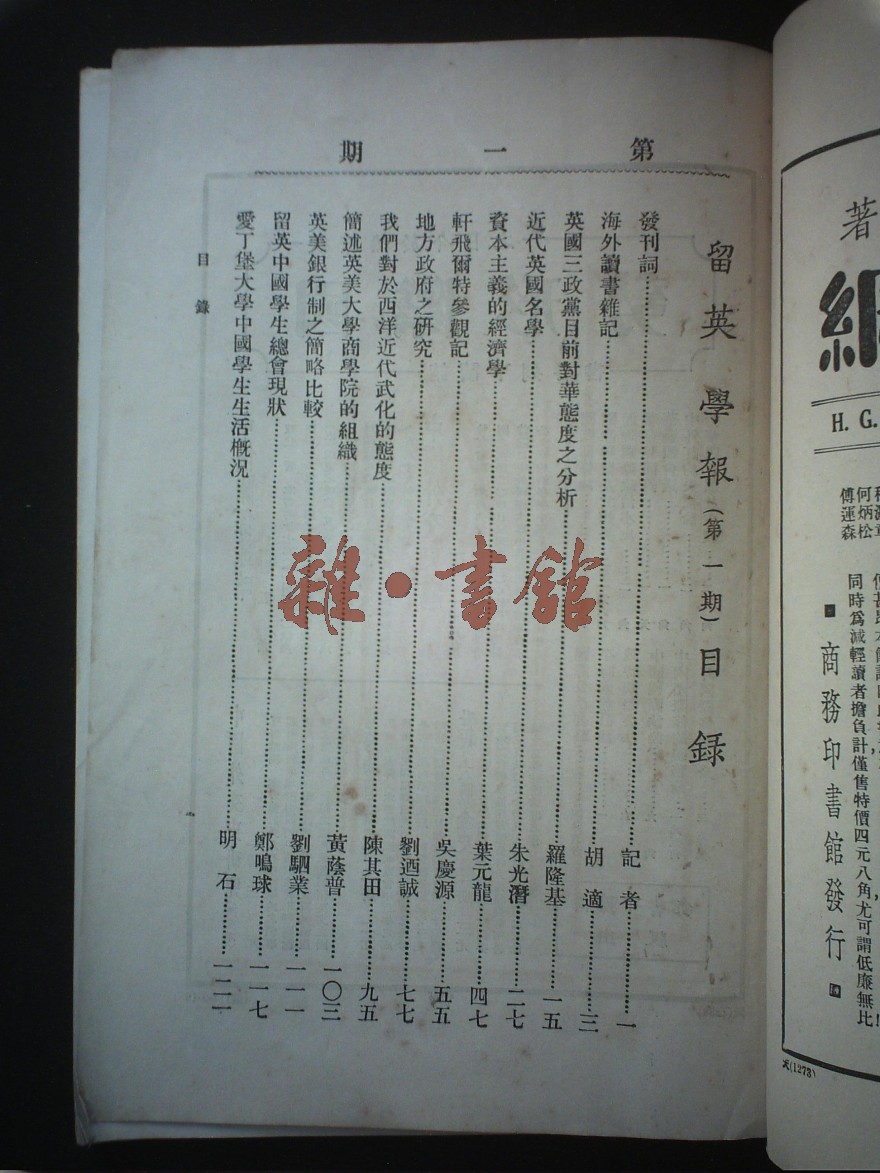 第一期
留英學報(第一期)目録
發刊詞……記者……一
海外讀書雜記……胡適……三
英國三政黨目前對華態度之分析……羅隆基……一五
近代英國名學……朱光潛……二七
資本主義的經濟學……葉元龍……四七
軒飛爾特參觀記……吳慶源……五五
地方政府之研究……劉迺誠……七七
我們對於西洋近代武化的態度……陳其田……九五
簡述英美大學商學院的組織……黃蔭普……一〇三
英美銀行制之簡略比較……劉駟業……一一一
留英中國學生總會現狀……鄭鳴球……一一七
愛丁堡大學中國學生生活概況……明石……一二一
目錄
雜·書館
著
H. G.
何炳松
傅運森
同時爲減輕讀者擔負計,僅售特價四元八角,尤可謂低廉無比!
商務印書館發行
(1273)